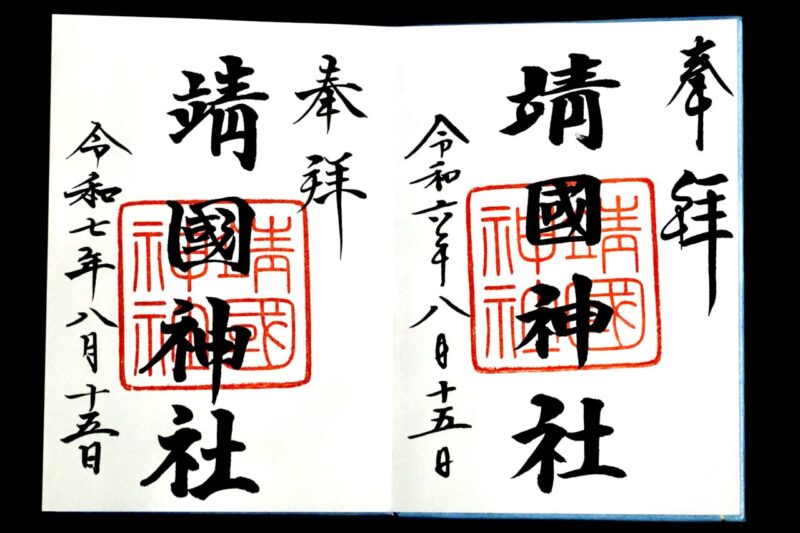 奉拜
靖國神社
令和六年八月十五日
奉拜
靖國神社
令和七年八月十五日
靖國
神社
靖國
神社